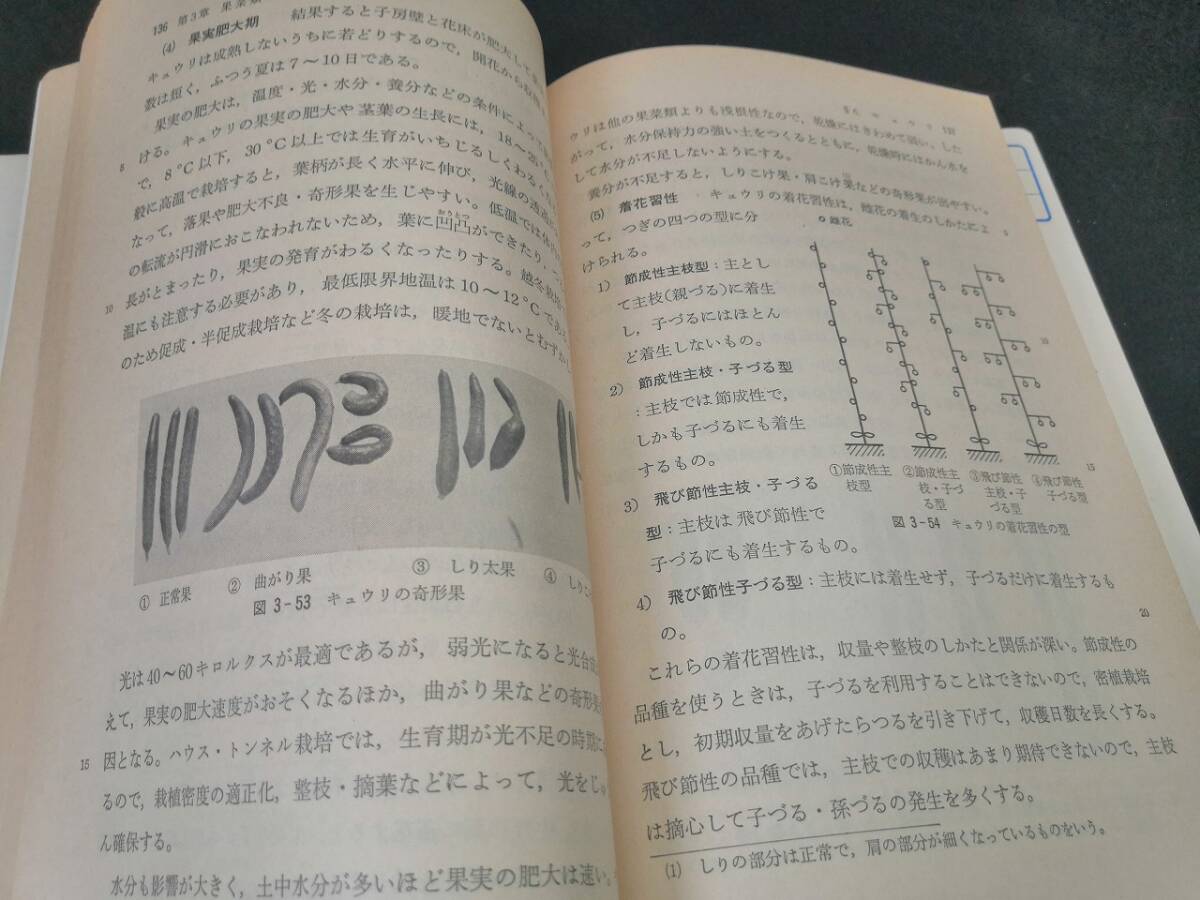 136 第3章 果菜類
(4) 果実肥大期 結果すると子房壁と花床が肥大して
キュウリは成熟しないうちに若どりするので，開花から収穫
数は短く，ふつう夏は7～10日である。
果実の肥大は，温度・光・水分・養分などの条件によって
5 ける。キュウリの果実の肥大や茎葉の生長には，18～25
で，8°C以下，30°C以上では生育がいちじるしくわるく
般に高温で栽培すると，葉柄が長く水平に伸び，光線の透過
なって，落果や肥大不良・奇形果を生じやすい。低温では体内
の転流が円滑におこなわれないため，葉に凹凸ができたり，
長がとまったり，果実の発育がわるくなったりする。越冬栽培
10 温にも注意する必要があり，最低限界地温は10～12°Cである
のため促成・半促成栽培など冬の栽培は，暖地でないとむずか
① 正常果
② 曲がり果
③ しり太果
④ しり
図 3-53 キュウリの奇形果
光は40～60キロルクスが最適であるが，弱光になると光合
えて，果実の肥大速度がおそくなるほか，曲がり果などの奇形
15 因となる。ハウス・トンネル栽培では，生育期が光不足の時期
るので，栽植密度の適正化，整枝・摘葉などによって，光をじゅ
ん確保する。
水分も影響が大きく，土中水分が多いほど果実の肥大は速い。
§6 キュウリ 137
ウリは他の果菜類よりも浅根性なので，乾燥にはきわめて弱い。した
がって，水分保持力の強い土をつくるとともに，乾燥時にはかん水を
して水分が不足しないようにする。
養分が不足すると，しりこけ果・肩こけ果などの奇形果が出やすい。
(5) 着花習性 キュウリの着花習性は，雌花の着生のしかたによ 5
って，つぎの四つの型に分
けられる。
1) 節成性主枝型：主とし
て主枝(親づる)に着生
し，子づるにはほとん
ど着生しないもの。
2) 節成性主枝・子づる型
：主枝では節成性で，
しかも子づるにも着生
するもの。
3) 飛び節性主枝・子づる
型：主枝は飛び節性で
子づるにも着生するもの。
雌花
10
15
①節成性主
枝型
②節成性主
枝・子づ
る型
③飛び節性
主枝・子
づる型
④飛び節性
子づる型
図 3-54 キュウリの着花習性の型
4) 飛び節性子づる型：主枝には着生せず，子づるだけに着生するも
の。 20
これらの着花習性は，収量や整枝のしかたと関係が深い。節成性の
品種を使うときは，子づるを利用することはできないので，密植栽培
とし，初期収量をあげたらつるを引き下げて，収穫日数を長くする。
飛び節性の品種では，主枝での収穫はあまり期待できないので，主枝
は摘心して子づる・孫づるの発生を多くする。
(1) しりの部分は正常で，肩の部分が細くなっているものをいう。